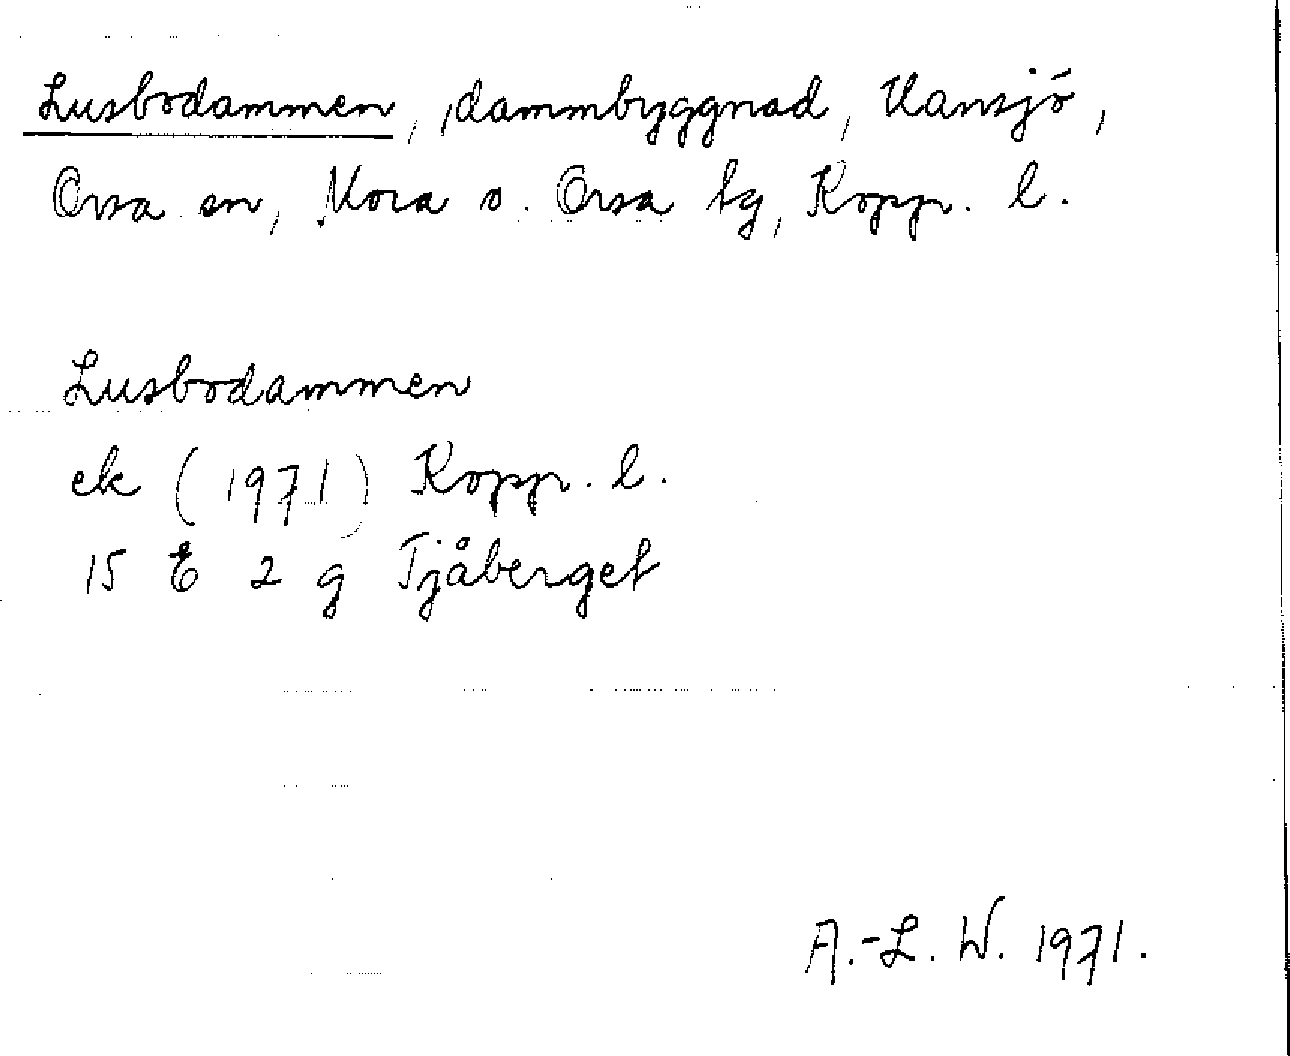 Lusbodammen, dammbyggnad, Vansjö,
Orsa sn, Mora o. Orsa tg, Kopp. l.
Lusbodammen
ek (1971) Kopp. l.
15 E 2 g Tjåberget
A.-L. W. 1971.